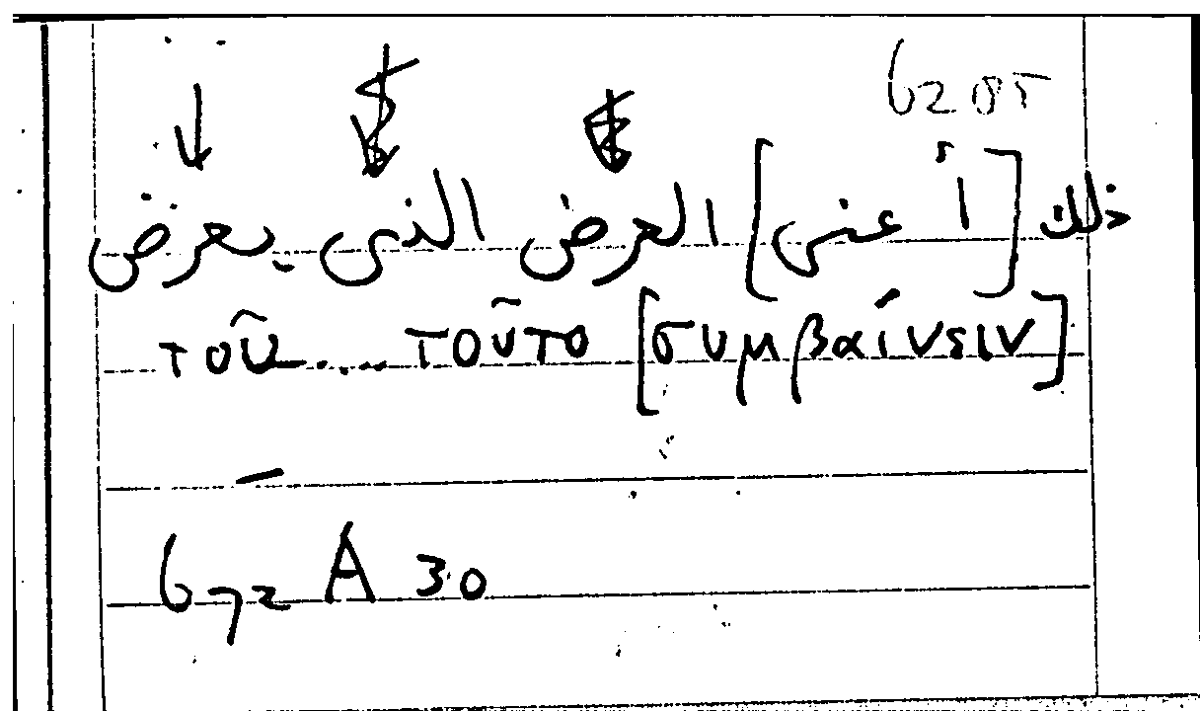 ذلك [أعنى] العرض الذى يعرض
τοῦ.... τοῦτο [συμβαίνειν]
672 A 30